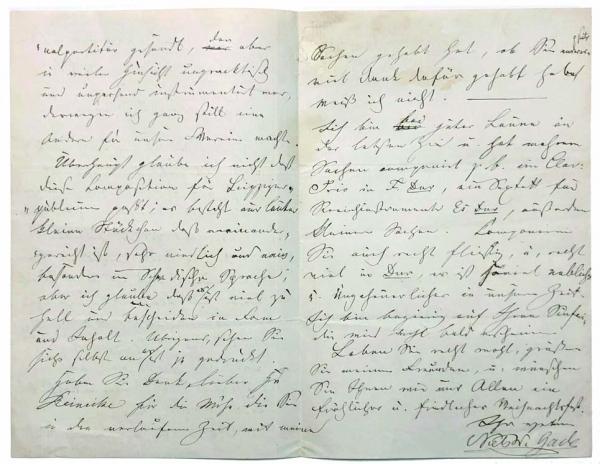 "nalpartitur gesandt, den aber
in vieler Hinsicht unpractisch
und unpassend instrumentirt war,
deswegen ich ganz still eine
Andere für unsern Verein machte.
Überhaupt glaube ich nicht daß
diese Composition für Leipziger-
"publicum paßt; es besteht aus lauter
kleinen Stückchen das aneinander-
gereiht ist, sehr niedlich und naiv,
besonders in Schwedische Sprache;
aber ich glaube daß es ist viel zu
hell und bescheiden in Form
und Inhalt. Übrigens, sehen Sie
sich's selbst an es ist ja gedruckt.
Haben Sie Dank, lieber Hr
Reinicke für die Mühe die Sie
in der verlaufenen Zeit, mit meinen
Sachen gehabt hat, ob Sie anderes
mit dank dafür gehabt haben
weiß ich nicht.
Ich bin bei guter Laune in
der letzten Zeit u. hat mehrere
Sachen componirt z.b. ein Clav:
Trio in F Dur, ein Septett für
Streichinstrumente Es Dur, außerdem
kleinere Sachen. Componiren
Sie auch recht fleißig, u, recht
viel in Dur, es ist soviel
u. Ungeheuerliches in unserer Zeit.
Ich bin begierig auf Ihren Sinfonie
die wird wohl bald erscheinen.
Leben Sie recht wohl, grüßen
Sie meinen Freunden, u, wünschen
Sie Ihnen wie uns Allen ein
Fröhliches u. friedliches Weihnachtsfest.
Ihr
Niels W. Gade